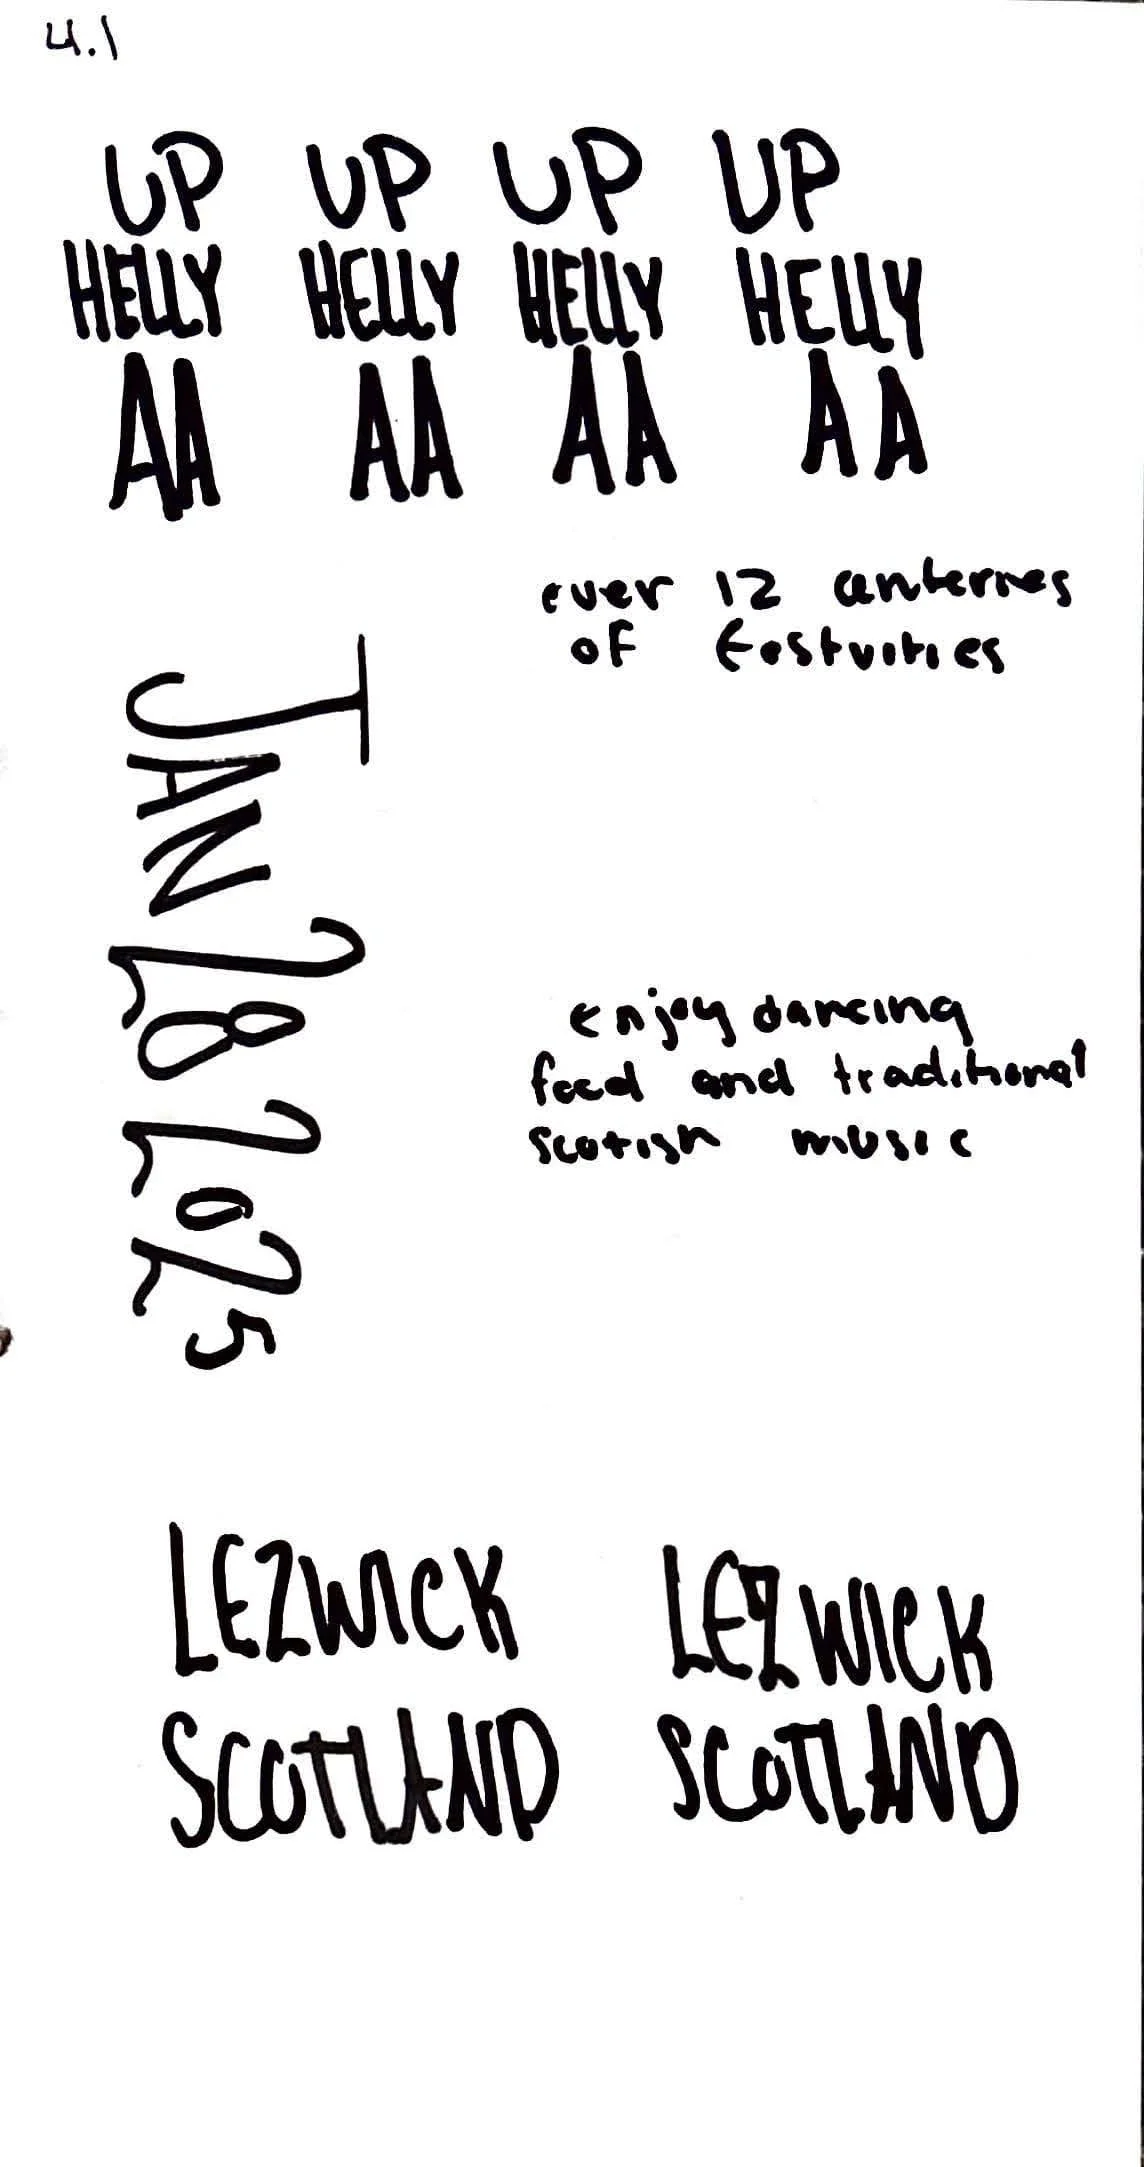 4.1
UP UP UP UP
HELLY HELLY HELLY HELLY
AA AA AA AA
over 12 canterries
of festvities
JAN 28 2025
enjoy dancing
food and traditional
scotish music
LEZWICK LEZWICK
SCOTLAND SCOTLAND